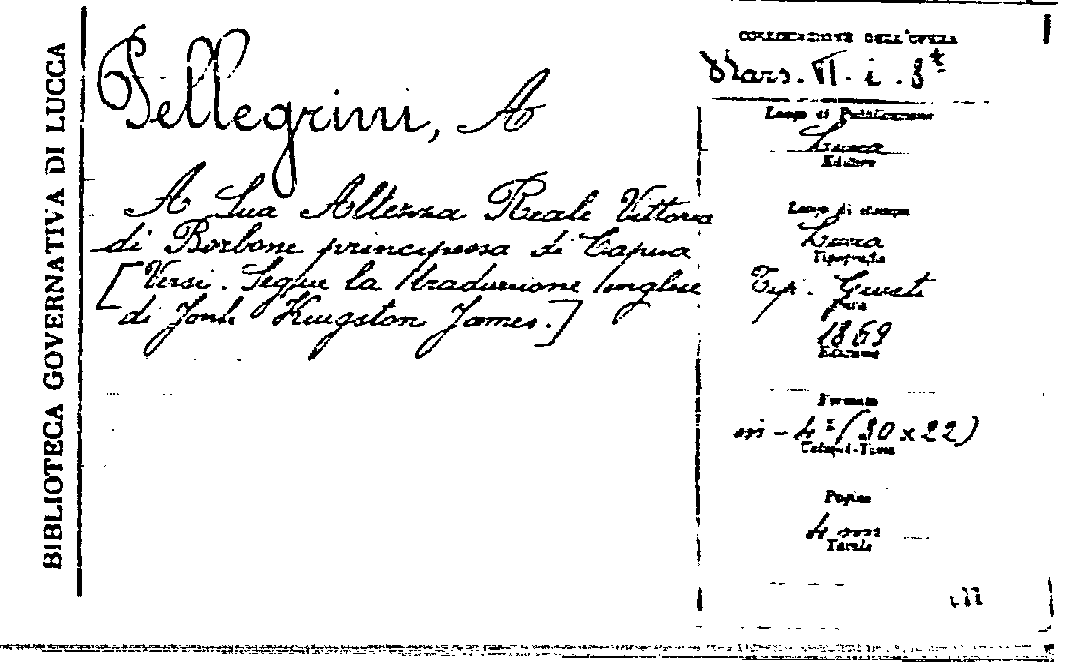 BIBLIOTECA GOVERNATIVA DI LUCCA
Pellegrini, A
A Sua Altezza Reale Vittoria
di Borbone principessa di Capua
[Versi. Segue la traduzione inglese
di Kingston James.]
COLLOCAZIONE DELL'OPERA
Mars. VI. i.
Luogo di Pubblicazione
Lucca
Editore
Luogo di stampa
Lucca
Tipografia
Tip. Giusti
Data
1869
Edizione
Formato
in-4° (30x22)
Pagine
4 nn
Tavole